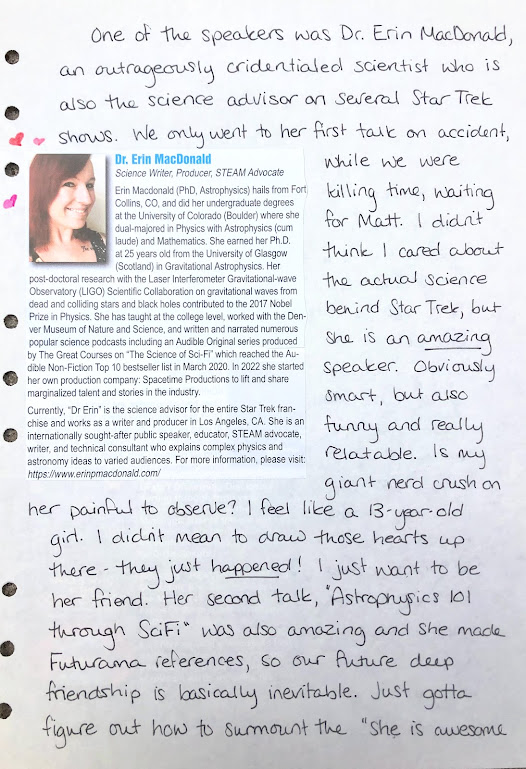 One of the speakers was Dr. Erin MacDonald,
an outrageously cridentialed scientist who is
also the science advisor on several Star Trek
shows. We only went to her first talk on accident,
Dr. Erin MacDonald
Science Writer, Producer, STEAM Advocate
Erin Macdonald (PhD, Astrophysics) hails from Fort
Collins, CO, and did her undergraduate degrees
at the University of Colorado (Boulder) where she
dual-majored in Physics with Astrophysics (cum
laude) and Mathematics. She earned her Ph.D.
at 25 years old from the University of Glasgow
(Scotland) in Gravitational Astrophysics. Her
post-doctoral research with the Laser Interferometer Gravitational-wave
Observatory (LIGO) Scientific Collaboration on gravitational waves from
dead and colliding stars and black holes contributed to the 2017 Nobel
Prize in Physics. She has taught at the college level, worked with the Den-
ver Museum of Nature and Science, and written and narrated numerous
popular science podcasts including an Audible Original series produced
by The Great Courses on "The Science of Sci-Fi" which reached the Au-
dible Non-Fiction Top 10 bestseller list in March 2020. In 2022 she started
her own production company: Spacetime Productions to lift and share
marginalized talent and stories in the industry.
Currently, "Dr Erin" is the science advisor for the entire Star Trek fran-
chise and works as a writer and producer in Los Angeles, CA. She is an
internationally sought-after public speaker, educator, STEAM advocate,
writer, and technical consultant who explains complex physics and
astronomy ideas to varied audiences. For more information, please visit:
https://www.erinpmacdonald.com/
while we were
killing time, waiting
for Matt. I didn't
think I cared about
the actual science
behind Star Trek, but
she is an amazing
speaker. Obviously
smart, but also
funny and really
relatable. Is my
giant nerd crush on
her painful to observe? I feel like a 13-year-old
girl. I didn't mean to draw those hearts up
there - they just happened! I just want to be
her friend. Her second talk, "Astrophysics 101
through SciFi" was also amazing and she made
Futurama references, so our future deep
friendship is basically inevitable. Just gotta
figure out how to surmount the "she is awesome